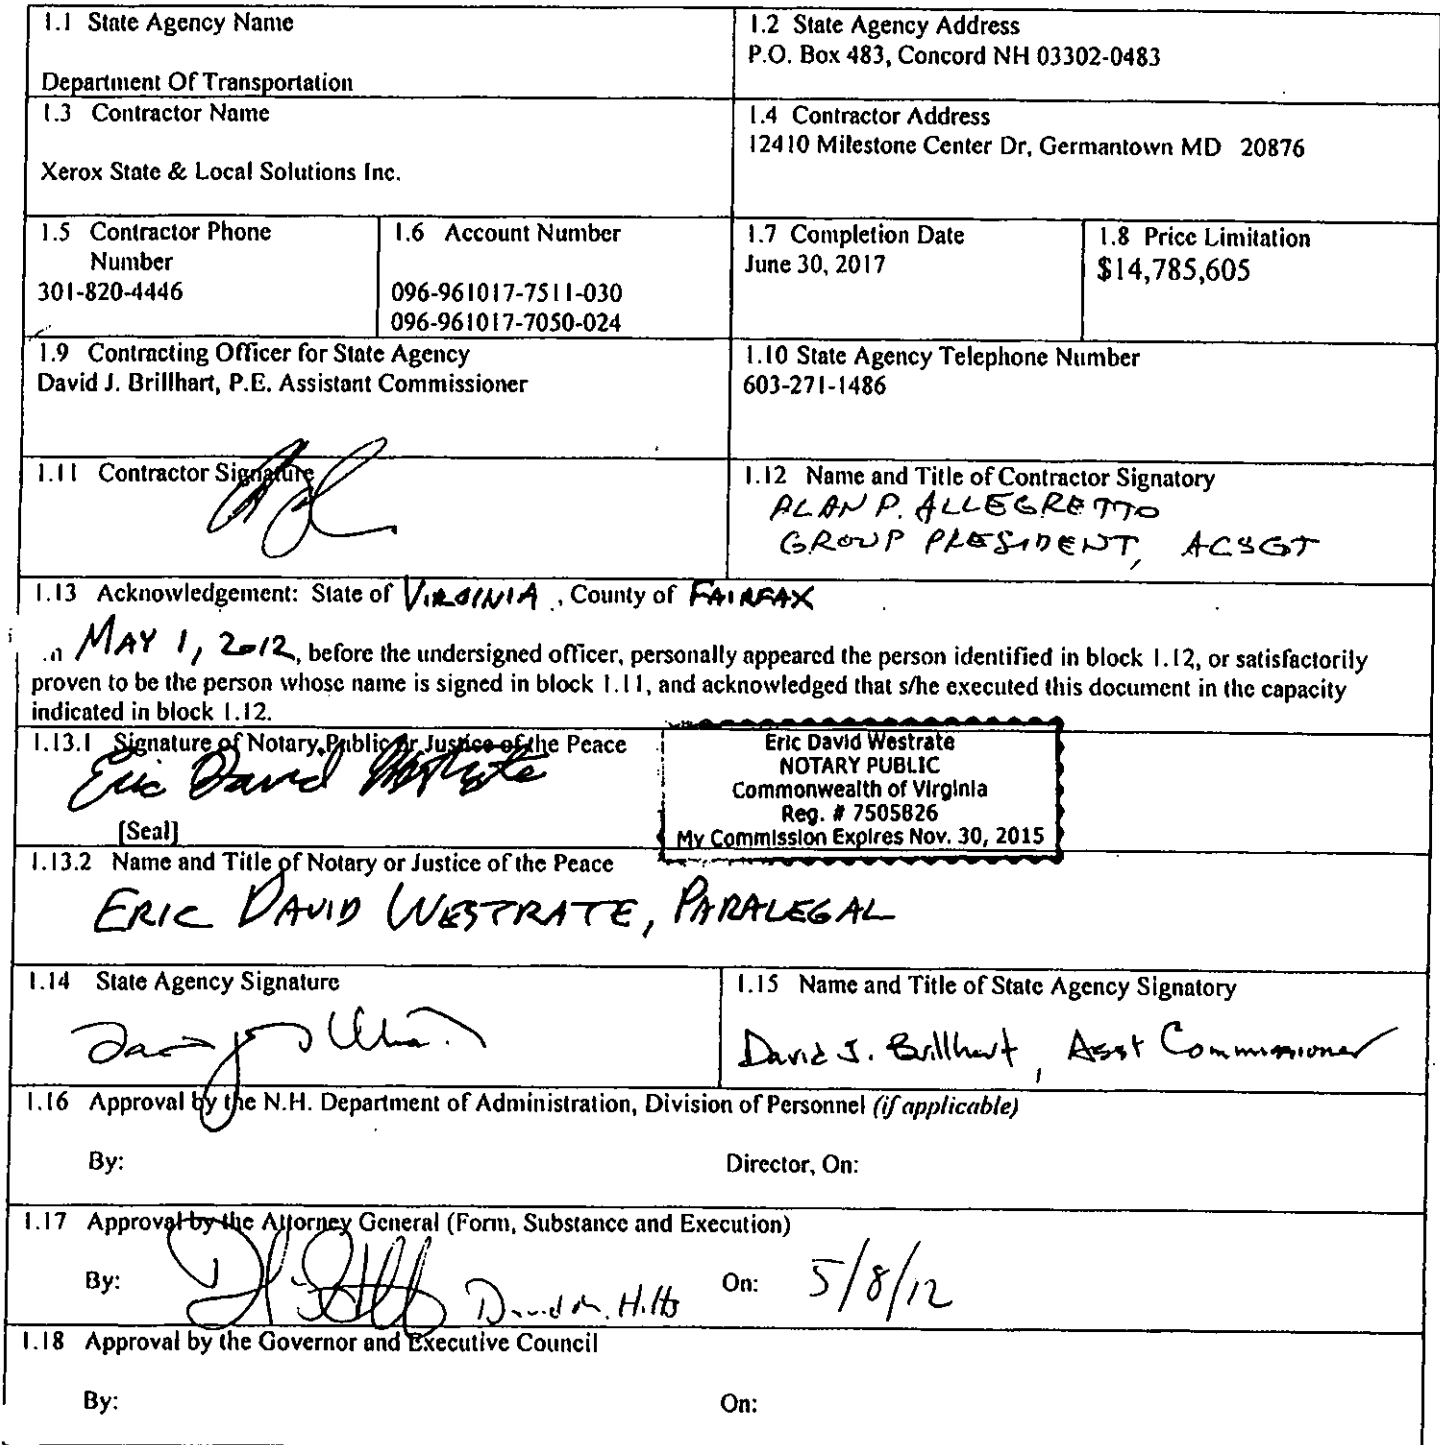 1.1 State Agency Name
Department Of Transportation
1.2 State Agency Address
P.O. Box 483, Concord NH 03302-0483
1.3 Contractor Name
Xerox State & Local Solutions Inc.
1.4 Contractor Address
12410 Milestone Center Dr, Germantown MD 20876
1.5 Contractor Phone
Number
301-820-4446
1.6 Account Number
096-961017-7511-030
096-961017-7050-024
1.7 Completion Date
June 30, 2017
1.8 Price Limitation
$14,785,605
1.9 Contracting Officer for State Agency
David J. Brillhart, P.E. Assistant Commissioner
1.10 State Agency Telephone Number
603-271-1486
1.11 Contractor Signature
1.12 Name and Title of Contractor Signatory
ALAN P. ALLEGRETTO
GROUP PRESIDENT, ACSGT
1.13 Acknowledgement: State of VIRGINIA, County of FAIRFAX
.n MAY 1, 2012, before the undersigned officer, personally appeared the person identified in block 1.12, or satisfactorily
proven to be the person whose name is signed in block 1.11, and acknowledged that s/he executed this document in the capacity
indicated in block 1.12.
1.13.1 Signature of Notary Public or Justice of the Peace
Eric David Westrate
[Seal]
Eric David Westrate
NOTARY PUBLIC
Commonwealth of Virginia
Reg. # 7505826
My Commission Expires Nov. 30, 2015
1.13.2 Name and Title of Notary or Justice of the Peace
ERIC DAVID WESTRATE, PARALEGAL
1.14 State Agency Signature
1.15 Name and Title of State Agency Signatory
David J. Brillhart, Asst Commissioner
1.16 Approval by the N.H. Department of Administration, Division of Personnel (if applicable)
By: Director, On:
1.17 Approval by the Attorney General (Form, Substance and Execution)
By: David M. Hilts On: 5/8/12
1.18 Approval by the Governor and Executive Council
By: On: